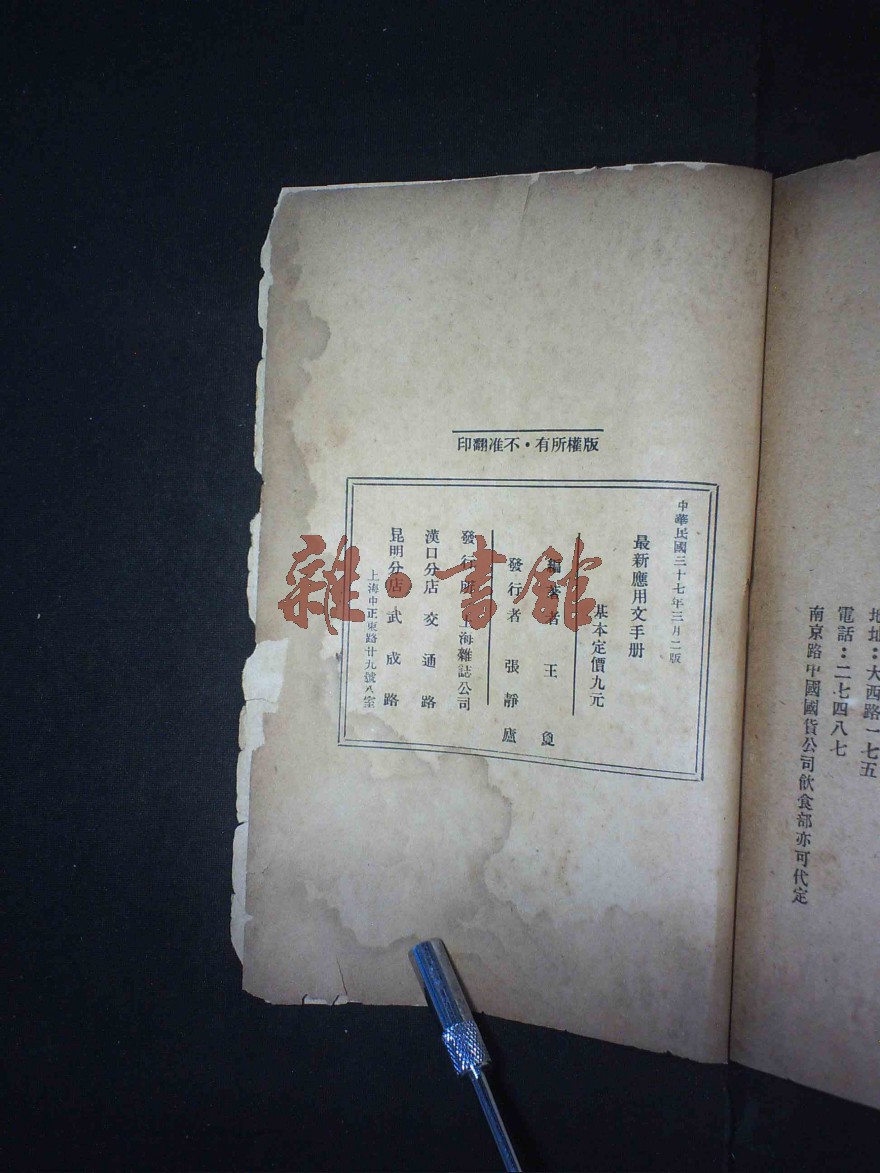 版權所有・不准翻印
中華民國三十七年三月二版
最新應用文手册
基本定價九元
編著者 王
發行者 張靜廬
發行所 上海雜誌公司
漢口分店 交通路
昆明分店 武成路
上海中正東路廿九號八室
地址：大西路一七五
電話：二七四八七
南京路中國國貨公司飲食部亦可代定
雜·書館